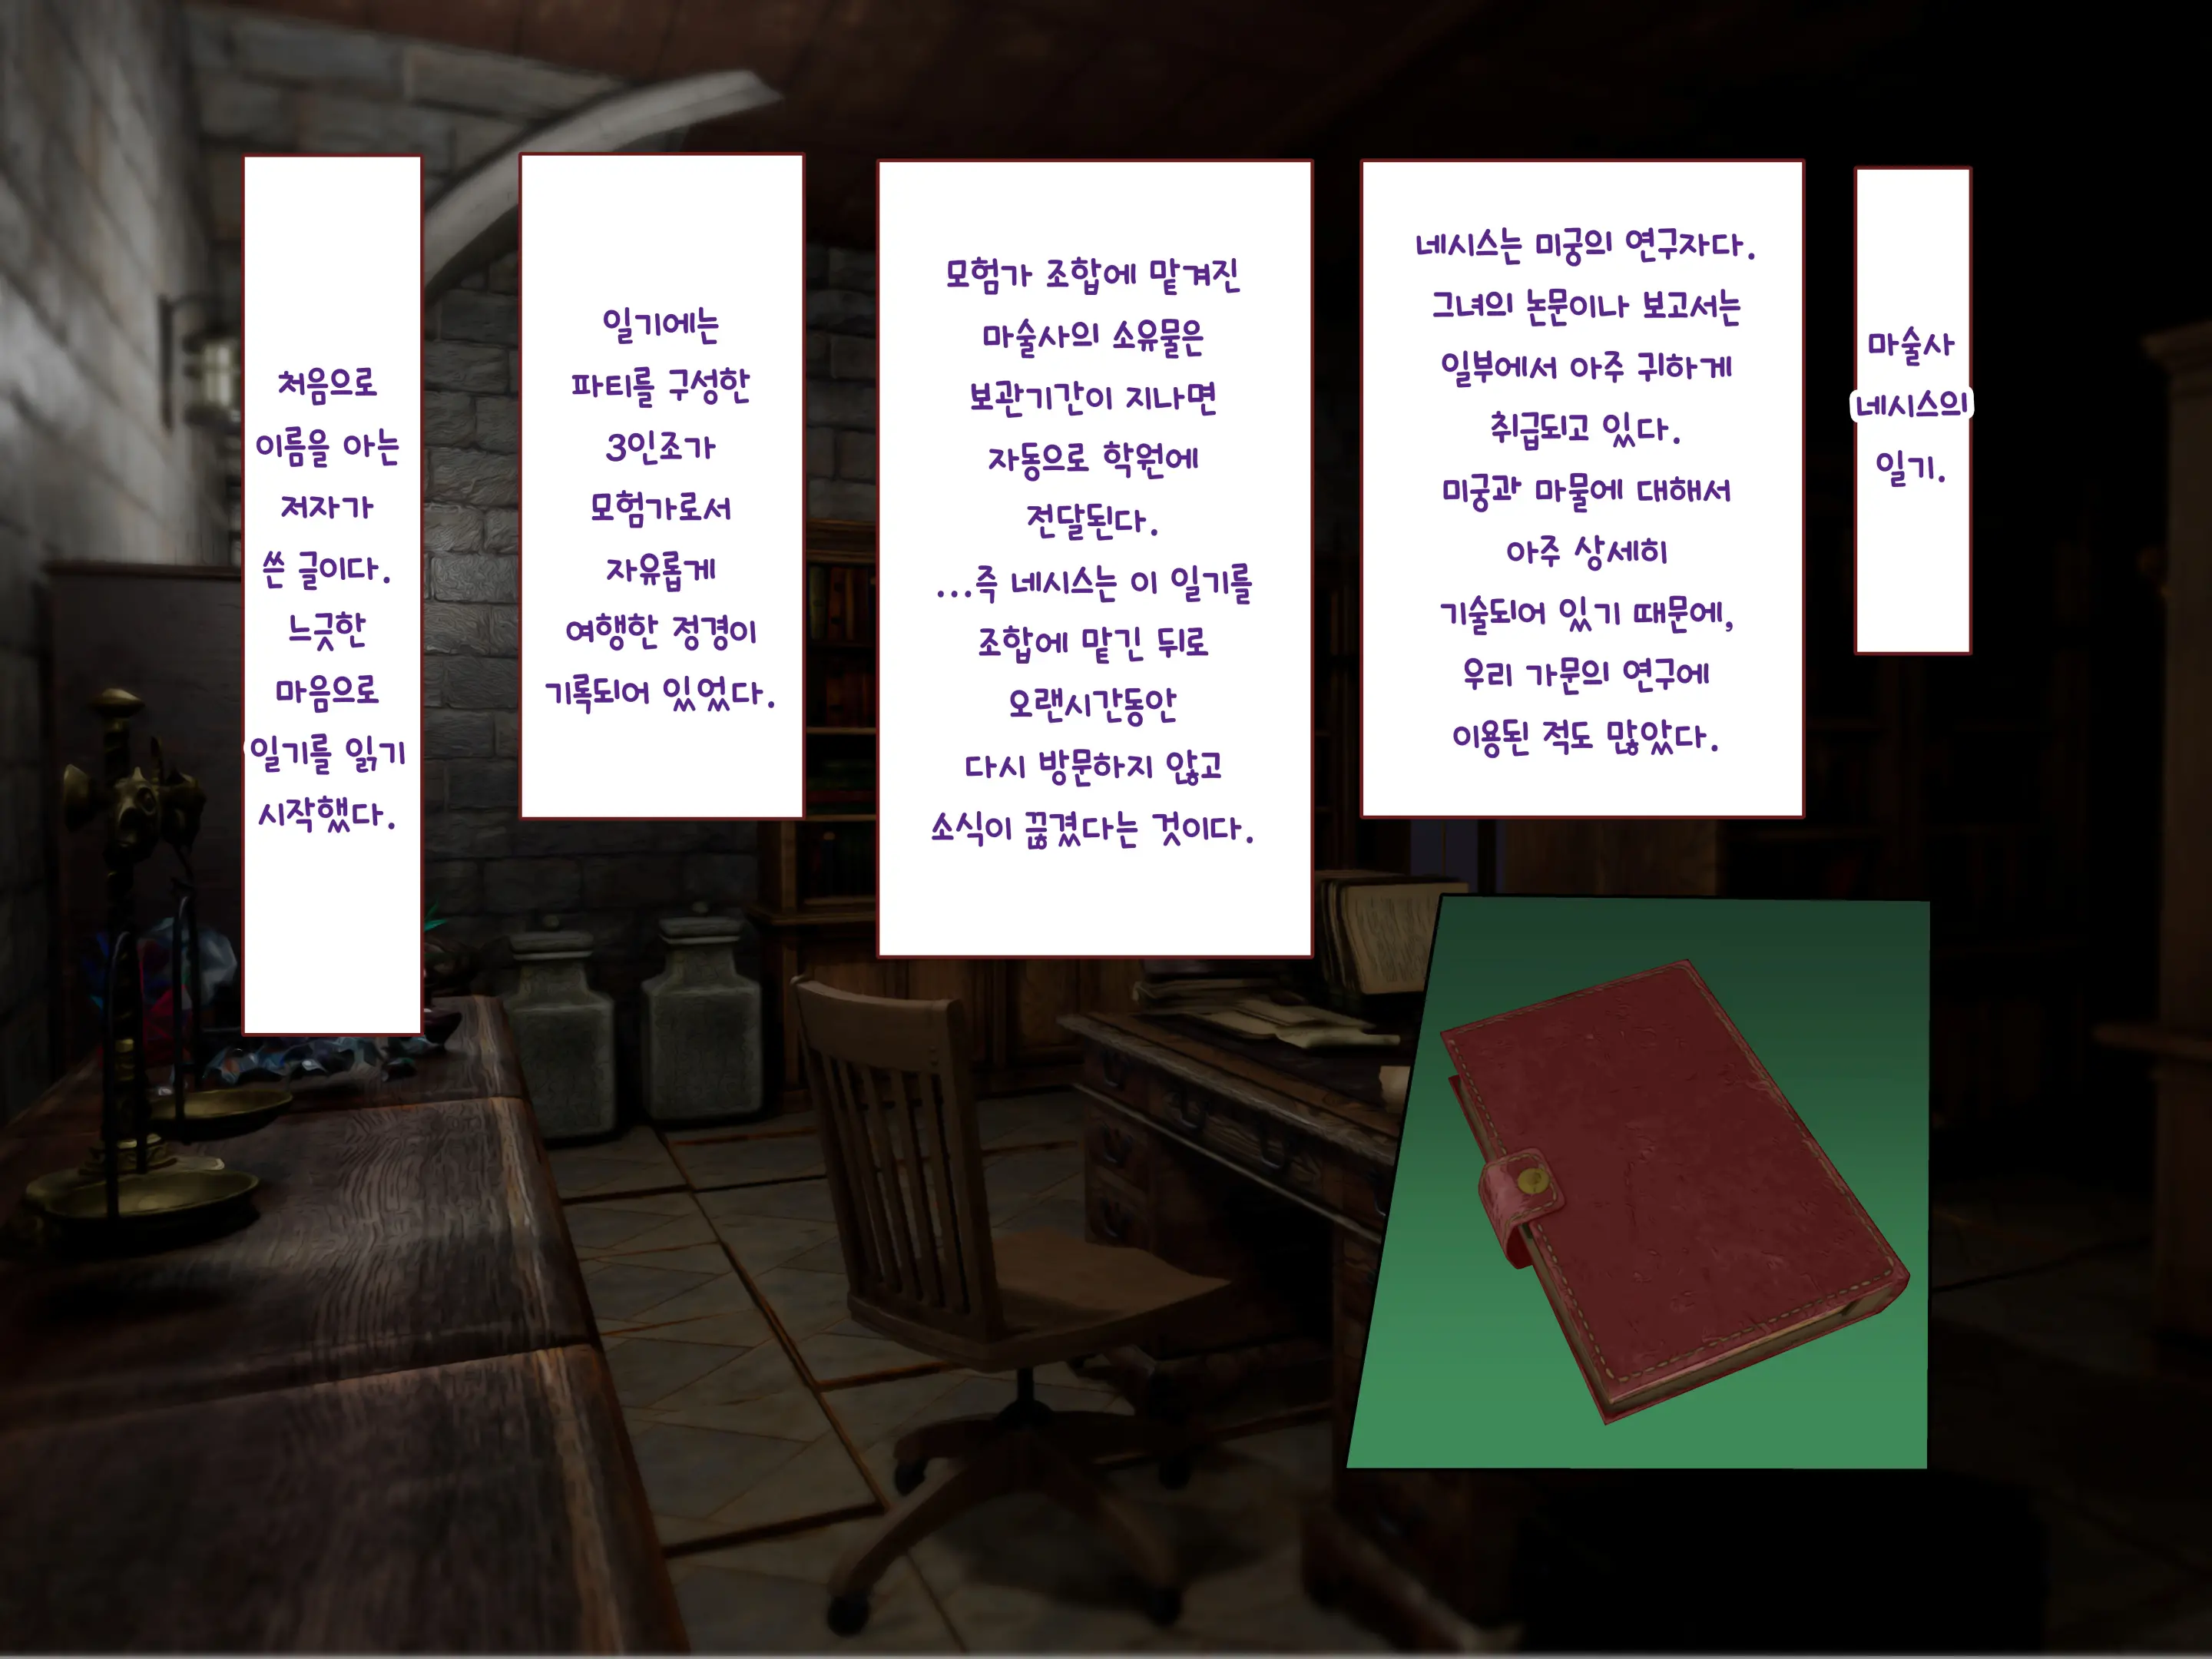 마술사
네시스의
일기.
네시스는 미궁의 연구자다.
그녀의 논문이나 보고서는
일부에서 아주 귀하게
취급되고 있다.
미궁과 마물에 대해서
아주 상세히
기술되어 있기 때문에,
우리 가문의 연구에
이용된 적도 많았다.
모험가 조합에 맡겨진
마술사의 소유물은
보관기간이 지나면
자동으로 학원에
전달된다.
...즉 네시스는 이 일기를
조합에 맡긴 뒤로
오랜시간동안
다시 방문하지 않고
소식이 끊겼다는 것이다.
일기에는
파티를 구성한
3인조가
모험가로서
자유롭게
여행한 정경이
기록되어 있었다.
처음으로
이름을 아는
저자가
쓴 글이다.
느긋한
마음으로
일기를 읽기
시작했다.